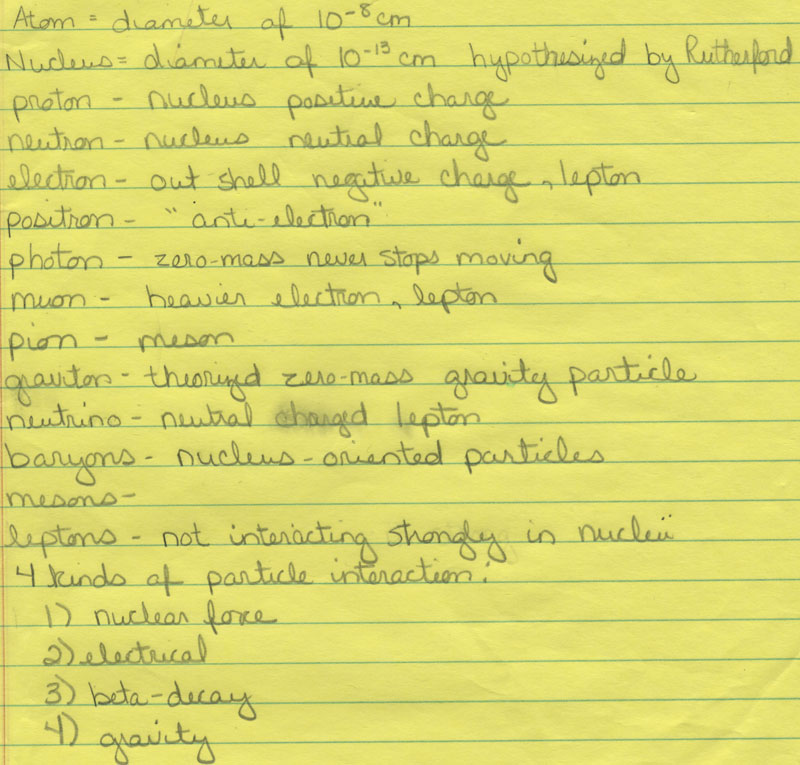 Atom = diameter of 10⁻⁸ cm
Nucleus = diameter of 10⁻¹³ cm hypothesized by Rutherford
proton - nucleus positive charge
neutron - nucleus neutral charge
electron - out shell negative charge, lepton
positron - "anti-electron"
photon - zero-mass never stops moving
muon - heavier electron, lepton
pion - meson
graviton - theorizd zero-mass gravity particle
neutrino - neutral charged lepton
baryons - nucleus-oriented particles
mesons-
leptons - not interacting strongly in nucleii
4 kinds of particle interaction:
1) nuclear force
2) electrical
3) beta-decay
4) gravity